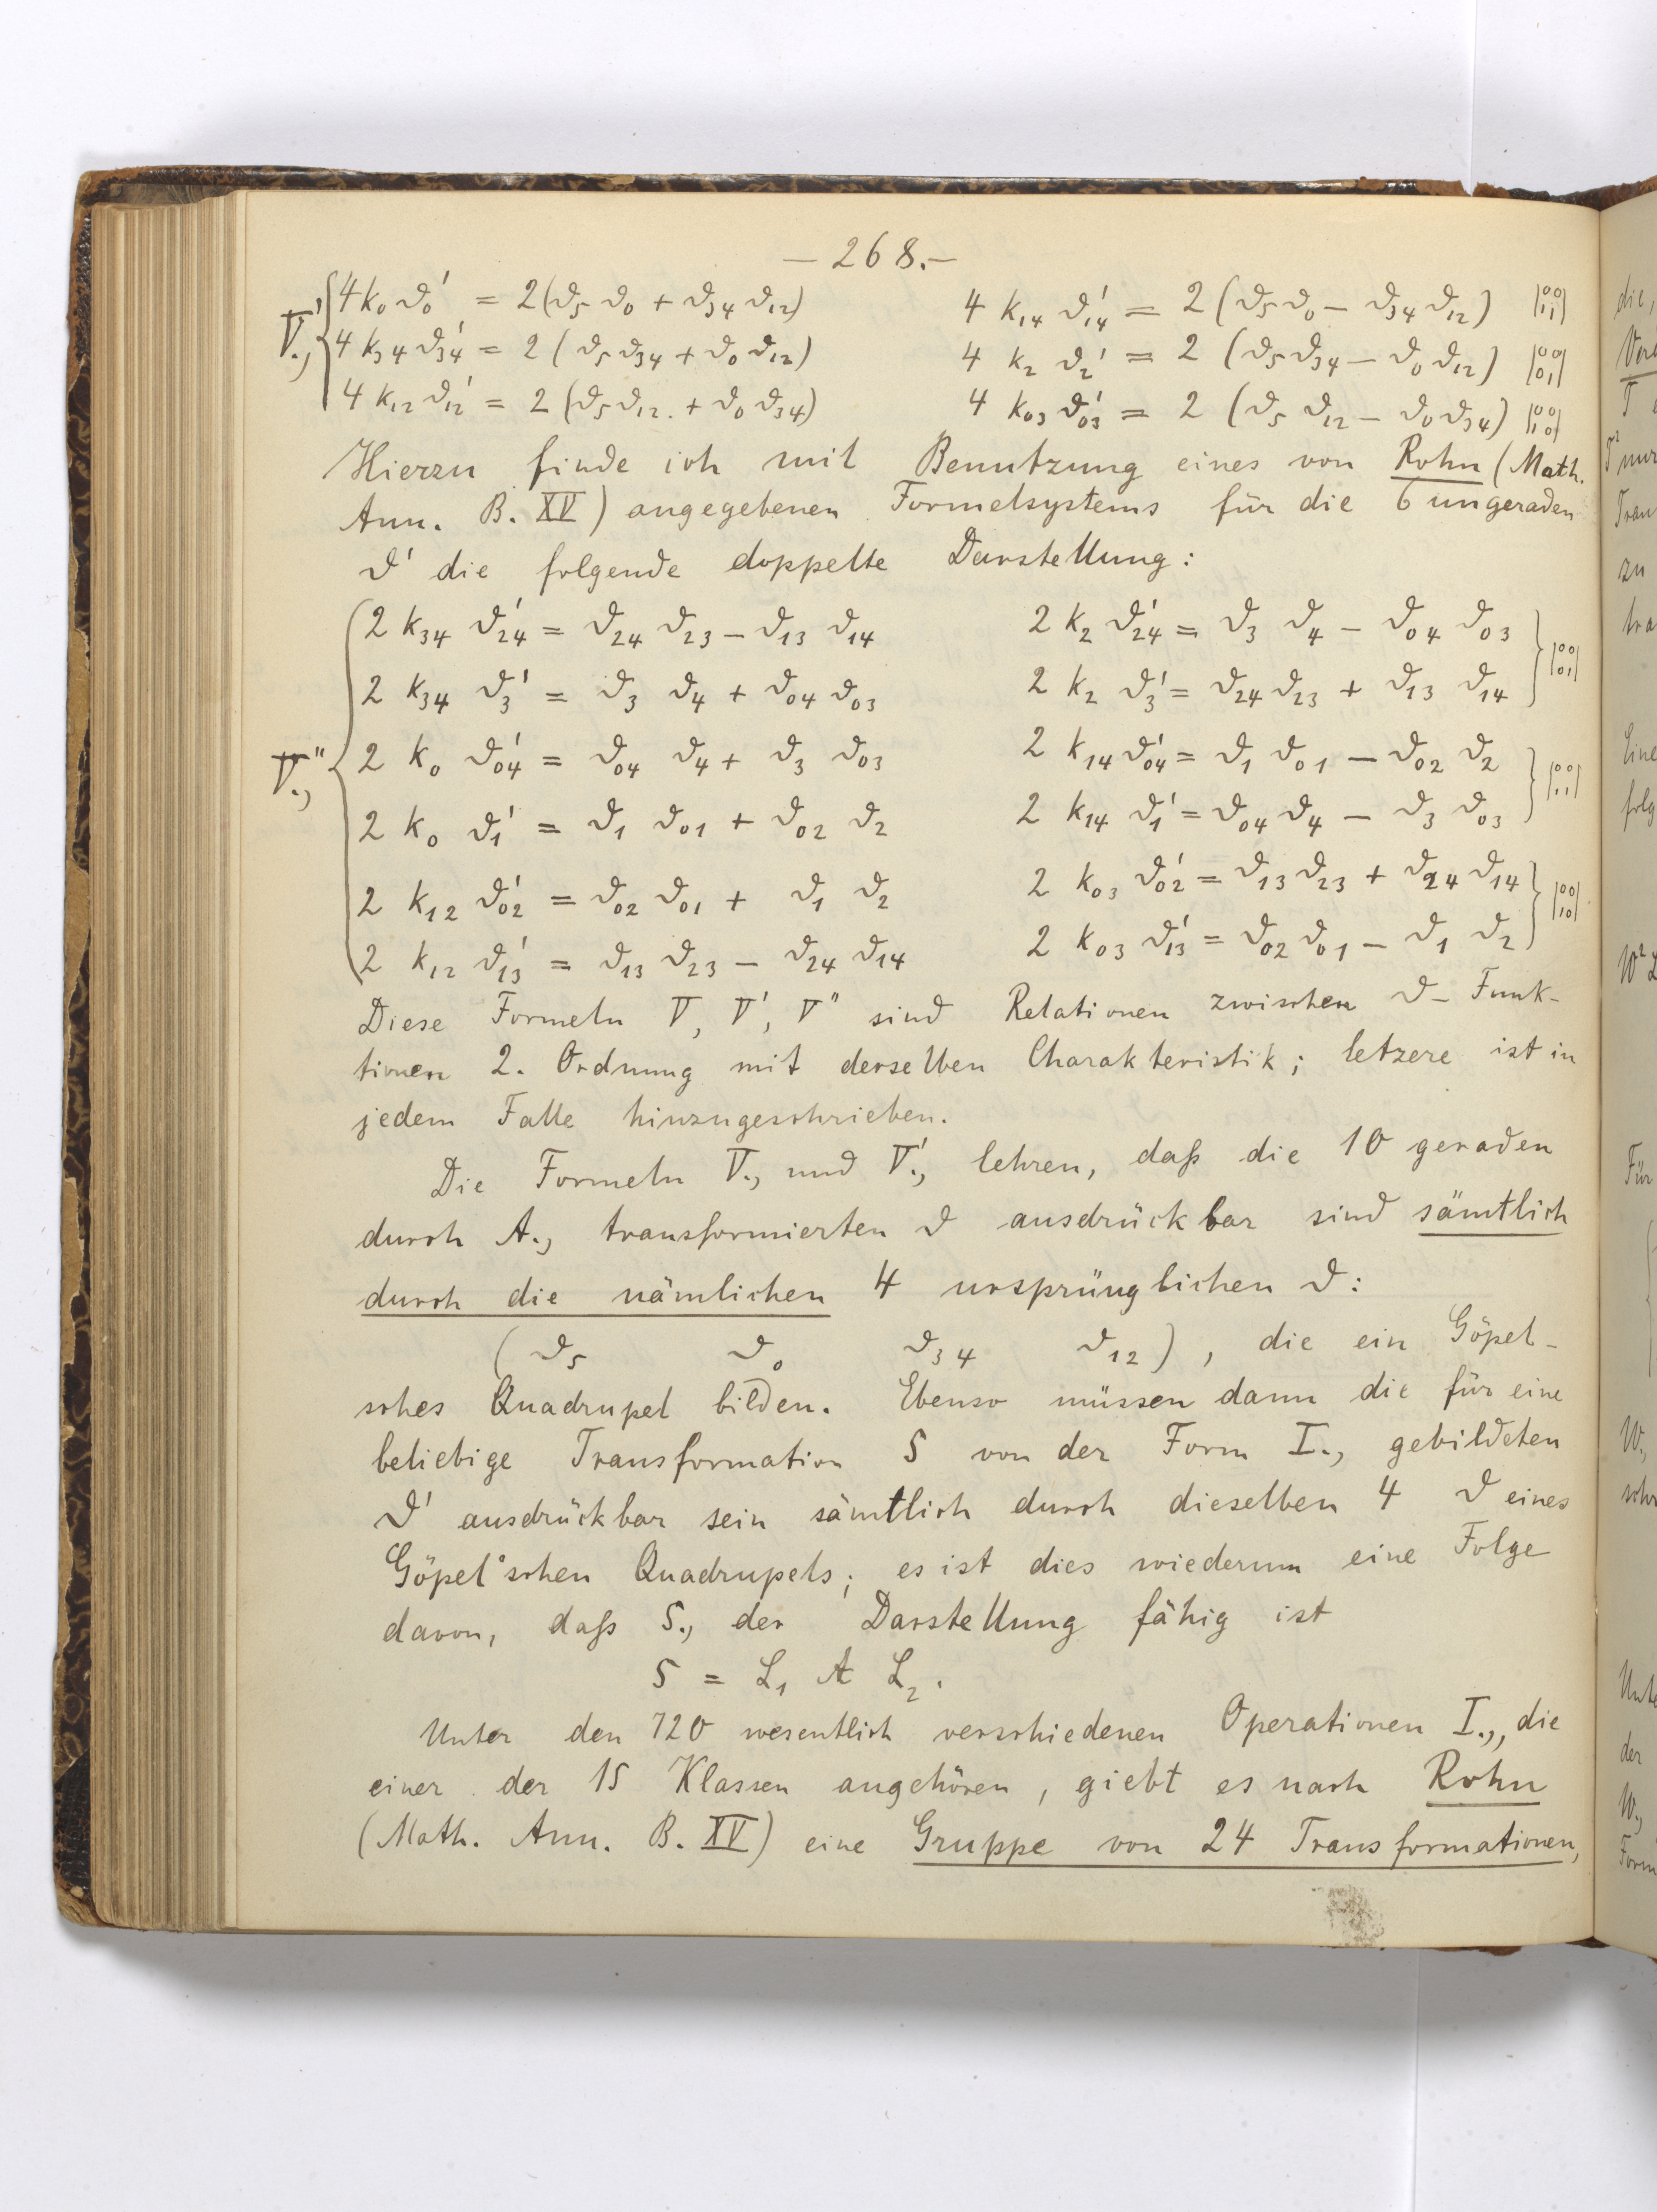 — 268. —
V'., { 4 k₀ ϑ₀' = 2 (ϑ₅ ϑ₀ + ϑ₃₄ ϑ₁₂) 4 k₁₄ ϑ₁₄' = 2 (ϑ₅ ϑ₀ − ϑ₃₄ ϑ₁₂) |00 11|
4 k₃₄ ϑ₃₄' = 2 (ϑ₅ ϑ₃₄ + ϑ₀ ϑ₁₂) 4 k₂ ϑ₂' = 2 (ϑ₅ ϑ₃₄ − ϑ₀ ϑ₁₂) |00 01|
4 k₁₂ ϑ₁₂' = 2 (ϑ₅ ϑ₁₂ + ϑ₀ ϑ₃₄) 4 k₀₃ ϑ₀₃' = 2 (ϑ₅ ϑ₁₂ − ϑ₀ ϑ₃₄) |00 10|
Hierzu finde ich mit Benutzung eines von Rohn (Math.
Ann. B. XV) angegebenen Formelsystems für die 6 ungeraden
ϑ' die folgende doppelte Darstellung:
2 k₃₄ ϑ₂₄' = ϑ₂₄ ϑ₂₃ − ϑ₁₃ ϑ₁₄ 2 k₂ ϑ₂₄' = ϑ₃ ϑ₄ − ϑ₀₄ ϑ₀₃
2 k₃₄ ϑ₃' = ϑ₃ ϑ₄ + ϑ₀₄ ϑ₀₃ 2 k₂ ϑ₃' = ϑ₂₄ ϑ₂₃ + ϑ₁₃ ϑ₁₄ } |00 01|
V''., { 2 k₀ ϑ₀₄' = ϑ₀₄ ϑ₄ + ϑ₃ ϑ₀₃ 2 k₁₄ ϑ₀₄' = ϑ₁ ϑ₀₁ − ϑ₀₂ ϑ₂
2 k₀ ϑ₁' = ϑ₁ ϑ₀₁ + ϑ₀₂ ϑ₂ 2 k₁₄ ϑ₁' = ϑ₀₄ ϑ₄ − ϑ₃ ϑ₀₃ } |00 11|
2 k₁₂ ϑ₀₂' = ϑ₀₂ ϑ₀₁ + ϑ₁ ϑ₂ 2 k₀₃ ϑ₀₂' = ϑ₁₃ ϑ₂₃ + ϑ₂₄ ϑ₁₄
2 k₁₂ ϑ₁₃' = ϑ₁₃ ϑ₂₃ − ϑ₂₄ ϑ₁₄ 2 k₀₃ ϑ₁₃' = ϑ₀₂ ϑ₀₁ − ϑ₁ ϑ₂ } |00 10|
Diese Formeln V, V', V'' sind Relationen zwischen ϑ- Funk-
tionen 2. Ordnung mit derselben Charakteristik; letzere ist in
jedem Falle hinzugeschrieben.
Die Formeln V., und V'., lehren, daß die 10 geraden
durch A., transformierten ϑ ausdrückbar sind sämtlich
durch die nämlichen 4 ursprünglichen ϑ:
(ϑ₅ ϑ₀ ϑ₃₄ ϑ₁₂), die ein Göpel-
sches Quadrupel bilden. Ebenso müssen dann die für eine
beliebige Transformation S von der Form I., gebildeten
ϑ' ausdrückbar sein sämtlich durch dieselben 4 ϑ eines
Göpel'schen Quadrupels; es ist dies wiederum eine Folge
davon, daß S., der Darstellung fähig ist
S = L₁ A L₂.
Unter den 720 wesentlich verschiedenen Operationen I., die
einer der 15 Klassen angehören, giebt es nach Rohn
(Math. Ann. B. XV) eine Gruppe von 24 Transformationen,